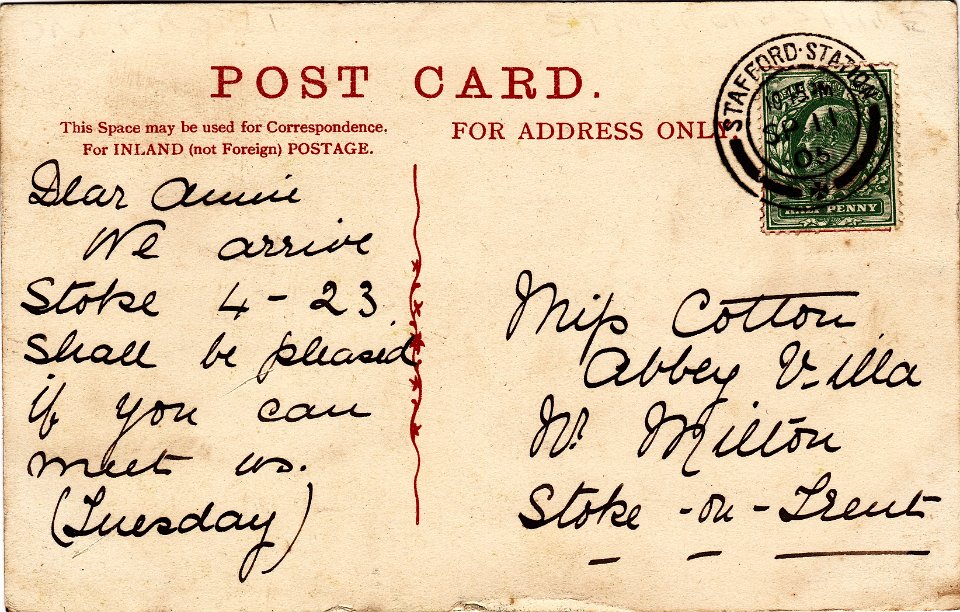 POST CARD.
This Space may be used for Correspondence.
For INLAND (not Foreign) POSTAGE.
FOR ADDRESS ONLY
STAFFORD·STATION
SP 11
HALF PENNY
Dear Annie
We arrive
Stoke 4-23
Shall be pleased
if you can
meet us.
(Tuesday)
Miss Cotton
Abbey Villa
Nr Milton
Stoke-on-Trent